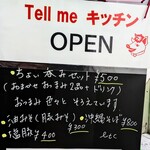 Tell me キッチン
OPEN
・ちょい呑みセット ¥500
(おまかせおつまみ2品+1ドリンク)
おつまみ 色々と そろえています
・油みそ(豚みそ) ・沖縄そば ¥800
¥300
・塩豚 ¥400 etc